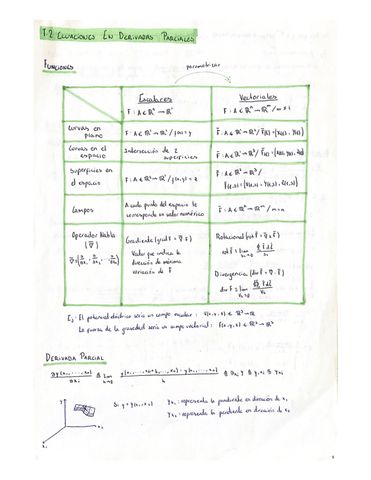 T.2 ECUACIONES EN DERIVADAS PARCIALES
FUNCIONES
parametrizar
Escalares
F: A ⊂ ℝⁿ → ℝ¹
Vectoriales
F̄: A ⊂ ℝⁿ → ℝᵐ / m ≠ 1
Curvas en plano
F: A ⊂ ℝ¹ → ℝ¹ / f(x) = y
F̄: A ⊂ ℝ¹ → ℝ² / F̄(t) = (x(t), y(t))
Curvas en el espacio
Intersección de 2 superficies
F̄: A ⊂ ℝ¹ → ℝ³ / F̄(t) = (x(t), y(t), z(t))
Superficies en el espacio
F: A ⊂ ℝ² → ℝ¹ / f(x,y) = z
F̄: A ⊂ ℝ² → ℝ³ /
Campos
A cada punto del espacio le corresponde un valor numérico
F̄: A ⊂ ℝⁿ → ℝᵐ / m = n
Operador Nabla
(∇̄)
Gradiente (grad F = ∇̄ · F)
Valor que indica la
dirección de máxima
variación de F
Rotacional (rot F̄ = ∇̄ x F̄)
Divergencia (div F̄ = ∇̄ · F̄)
Ej: El potencial eléctrico sería un campo escalar: f(x, y, z) ∈ ℝ³ → ℝ
La fuerza de la gravedad sería un campo vectorial: F̄(x, y, z) ∈ ℝ³ → ℝ³
DERIVADA PARCIAL
Si y = y(x₁, x₂)
yx₁ : representa la pendiente en dirección de x₁
yx₂ : representa la pendiente en dirección de x₂